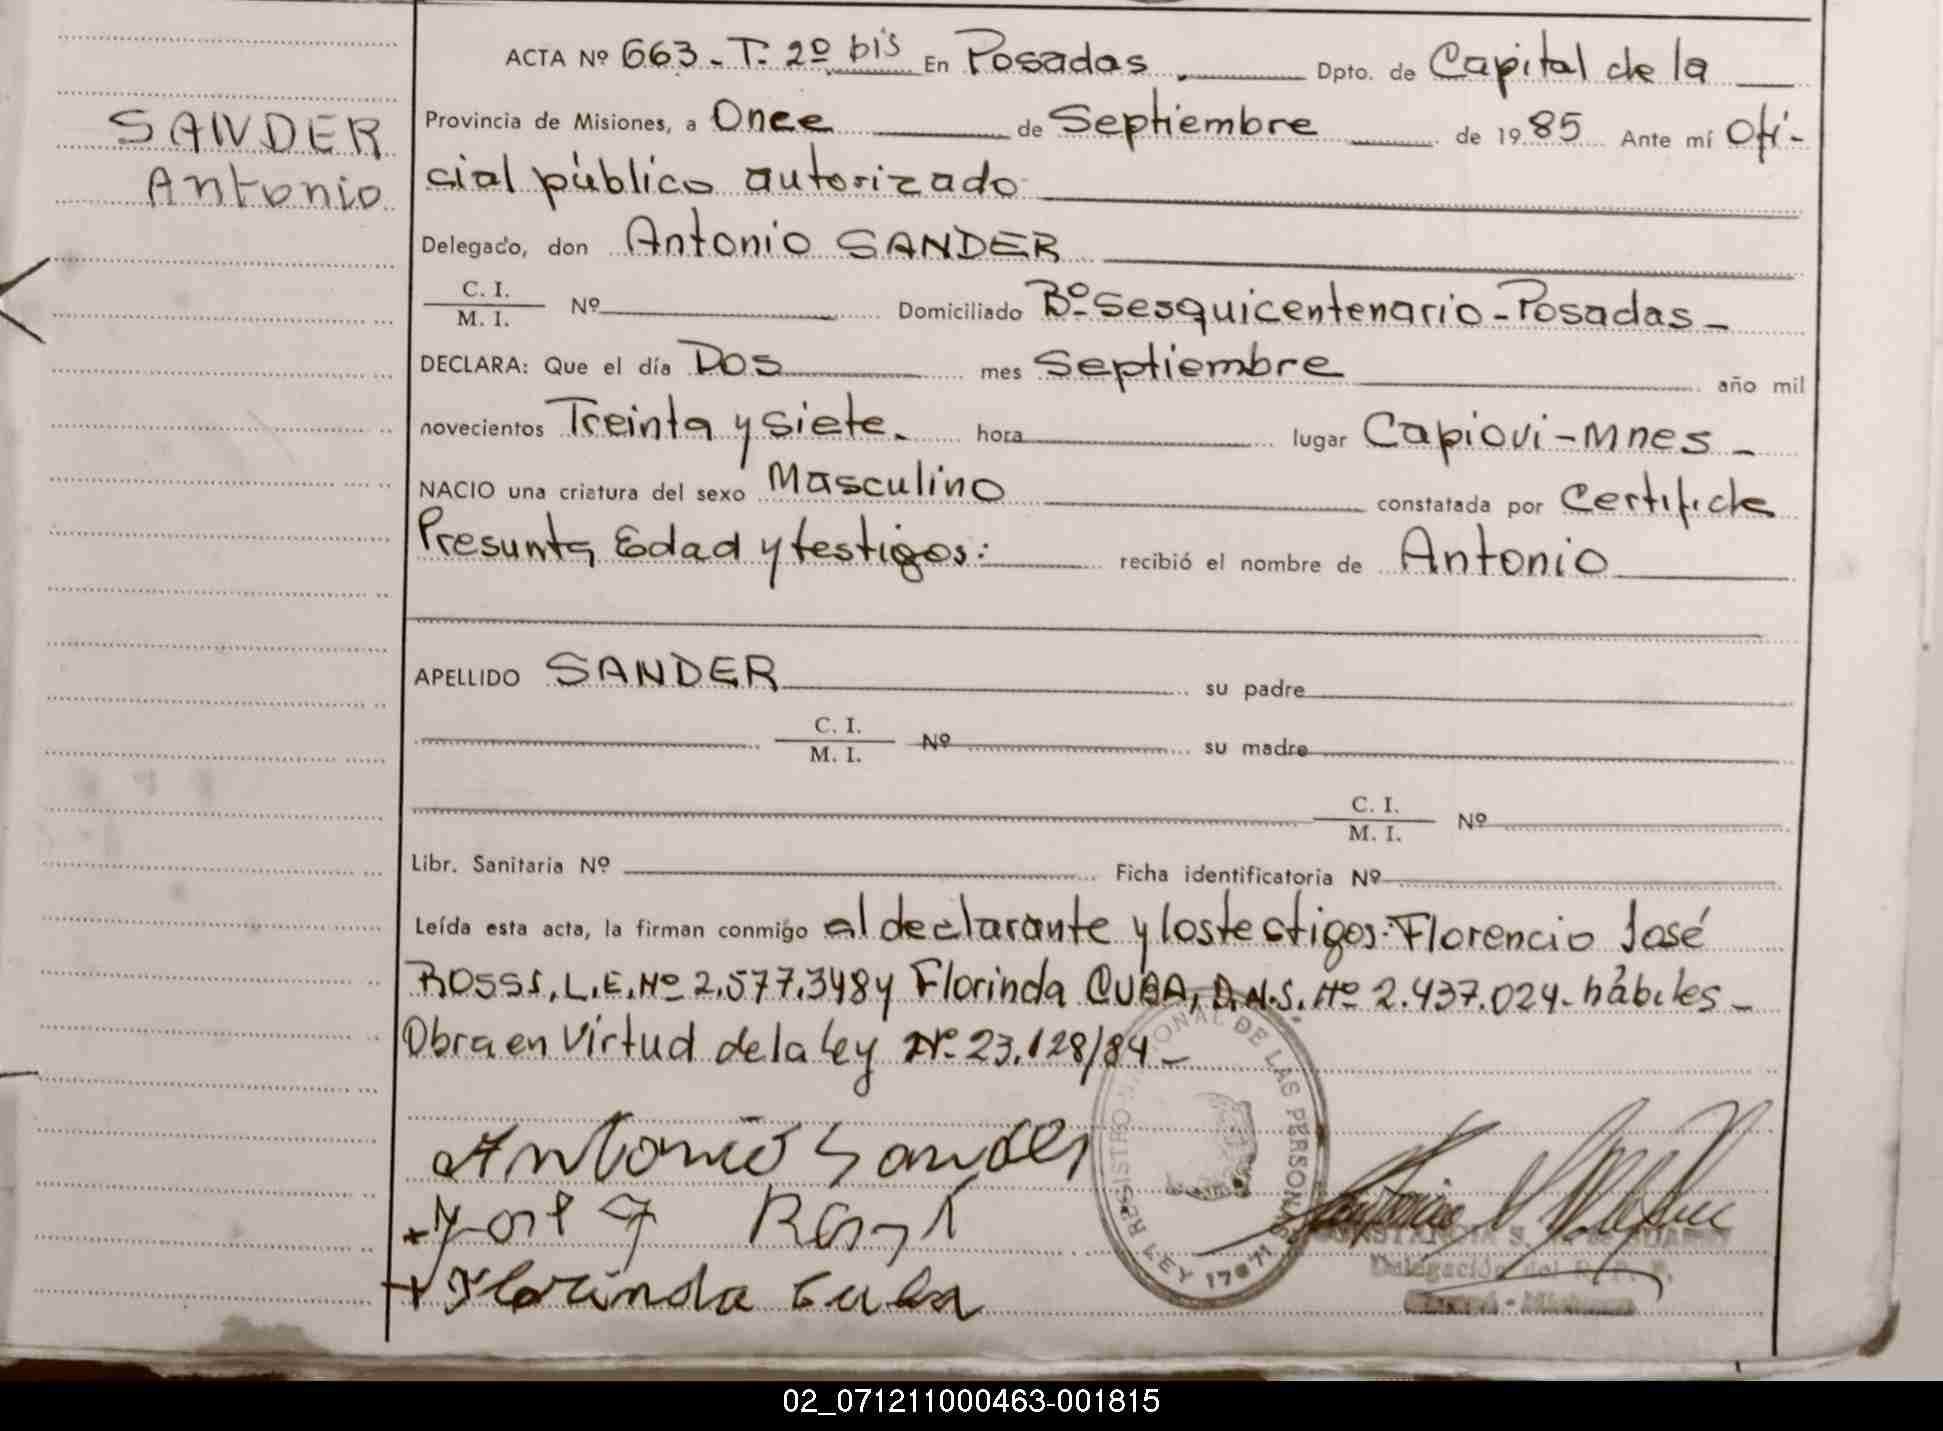 SANDER
Antonio
ACTA Nº 663-T. 2º bis En Posadas Dpto. de Capital de la
Provincia de Misiones, a Once de Septiembre de 1985 Ante mí Ofi-
cial público autorizado
Delegado, don Antonio SANDER
C. I.
M. I. Nº Domiciliado Bº Sesquicentenario-Posadas-
DECLARA: Que el día Dos mes Septiembre año mil
novecientos Treinta y siete. hora lugar Capiovi-Mnes-
NACIO una criatura del sexo Masculino constatada por Certificde
Presunta Edad y testigos: recibió el nombre de Antonio
APELLIDO SANDER su padre
C. I.
M. I. Nº su madre
C. I.
M. I. Nº
Libr. Sanitaria Nº Ficha identificatoria Nº
Leída esta acta, la firman conmigo el declarante y los testigos: Florencio José
ROSSI, L.E. Nº 2.577.348 y Florinda CUBA, D.N.I. Nº 2.437.024- hábiles-
Obra en Virtud de la Ley Nº 23.128/84-
Antonio Sander
Florinda Cuba
REGISTRO NACIONAL DE LAS PERSONAS
LEY 17671
Delegación del R. P. P.
02_071211000463-001815